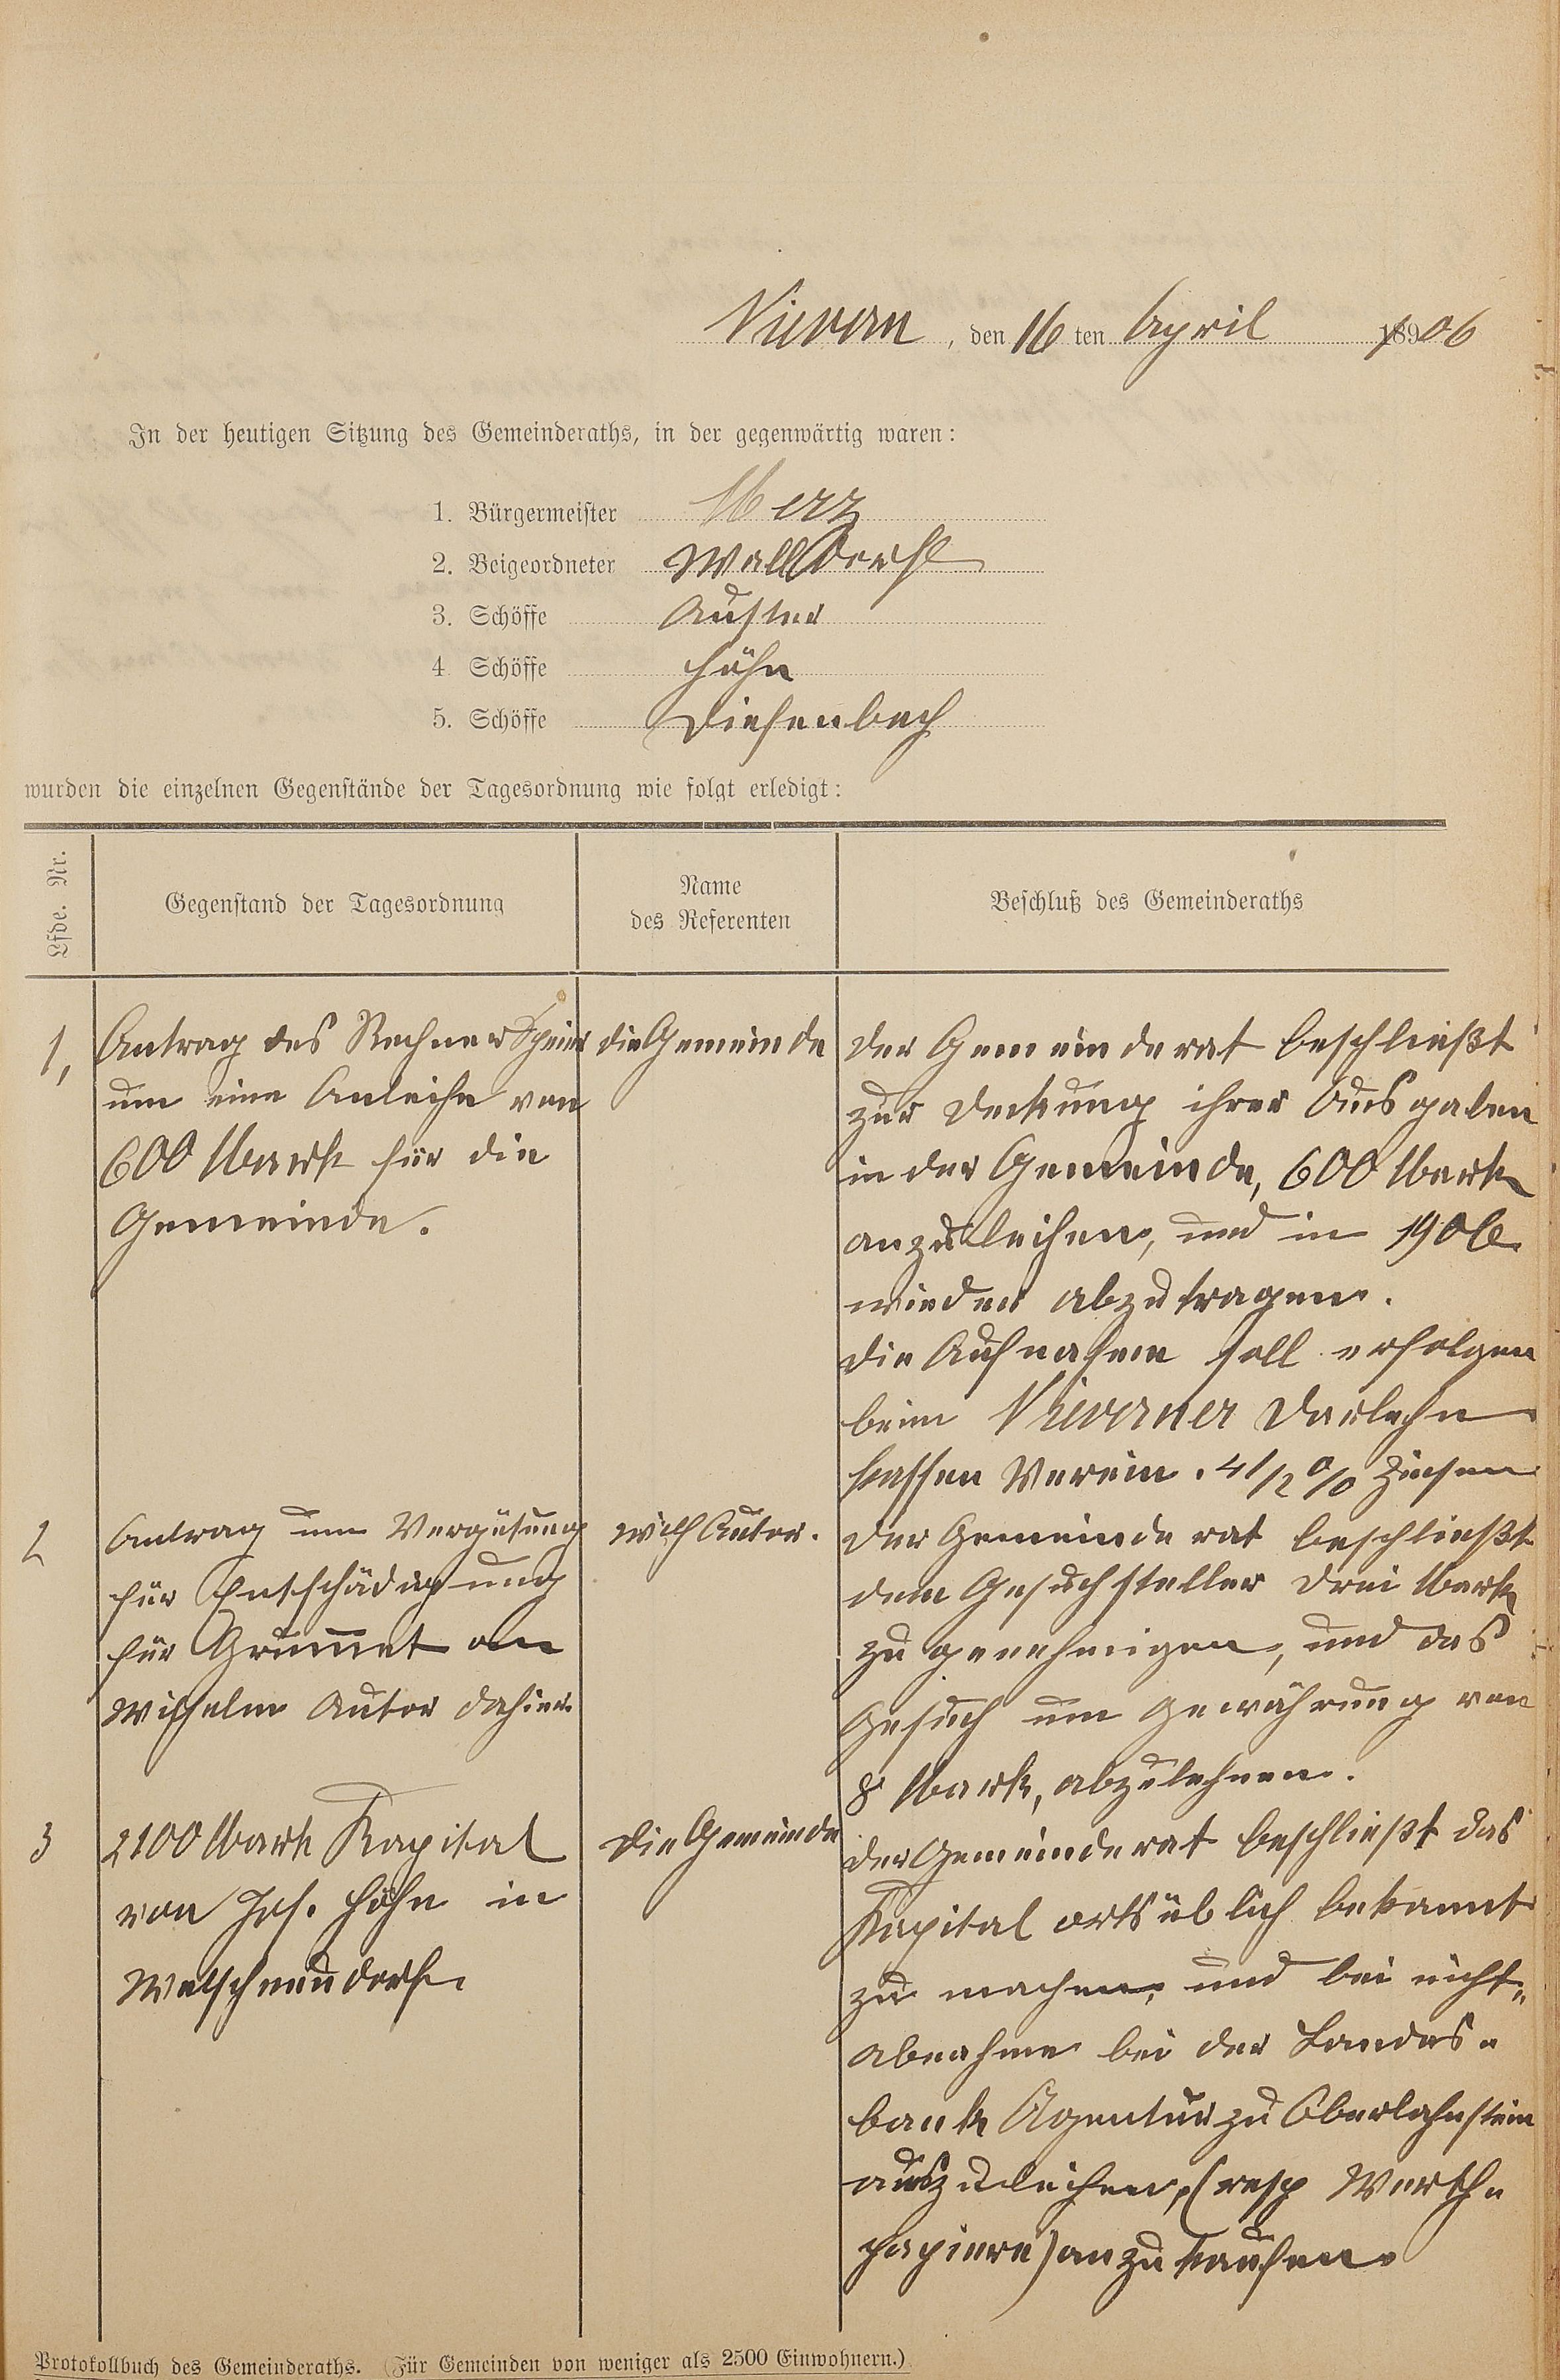 Nievern, den 16 ten April 1906
In der heutigen Sitzung des Gemeinderaths, in der gegenwärtig waren:
1. Bürgermeister Merz
2. Beigeordneter Walldorf
3. Schöffe
4. Schöffe Höhn
5. Schöffe Diefenbach
wurden die einzelnen Gegenstände der Tagesordnung wie folgt erledigt:
Lfde. Nr.
Gegenstand der Tagesordnung
Name
des Referenten
Beschluß des Gemeinderaths
1,
Antrag des Rechner
um eine Anleihe von
600 Mark für die
Gemeinde.
die Gemeinde
der Gemeinderat beschließt
zur Deckung ihrer Ausgaben
in der Gemeinde, 600 Mark
anzuleihen, und in 1906
wieder abzutragen.
die Aufnahme soll erfolgen
beim Nieverner Darlehn
kassen Verein. 4 1/2 % Zinsen
2
Antrag um Vergütung
für Entschädigung
für Grummet an
Wilhelm Autor dahier
Wilh Autor.
der Gemeinderat beschließt
dem Gesuchsteller drei Mark
zu genehmigen, und das
Gesuch um Gewährung von
8 Mark, abzulehnen.
3
2100 Mark Kapital
von Jos. Höhn in
Welschneudorf.
die Gemeinde
der Gemeinderat beschließt das
Kapital ortsüblich bekannt
zu machen, und bei nicht„
abnahme bei der Landes„
bank Agentur zu Oberlahnstein
auszuleihen, (resp Werth„
papiere) anzukaufen.
Protokollbuch des Gemeinderaths. (Für Gemeinden von weniger als 2500 Einwohnern.)